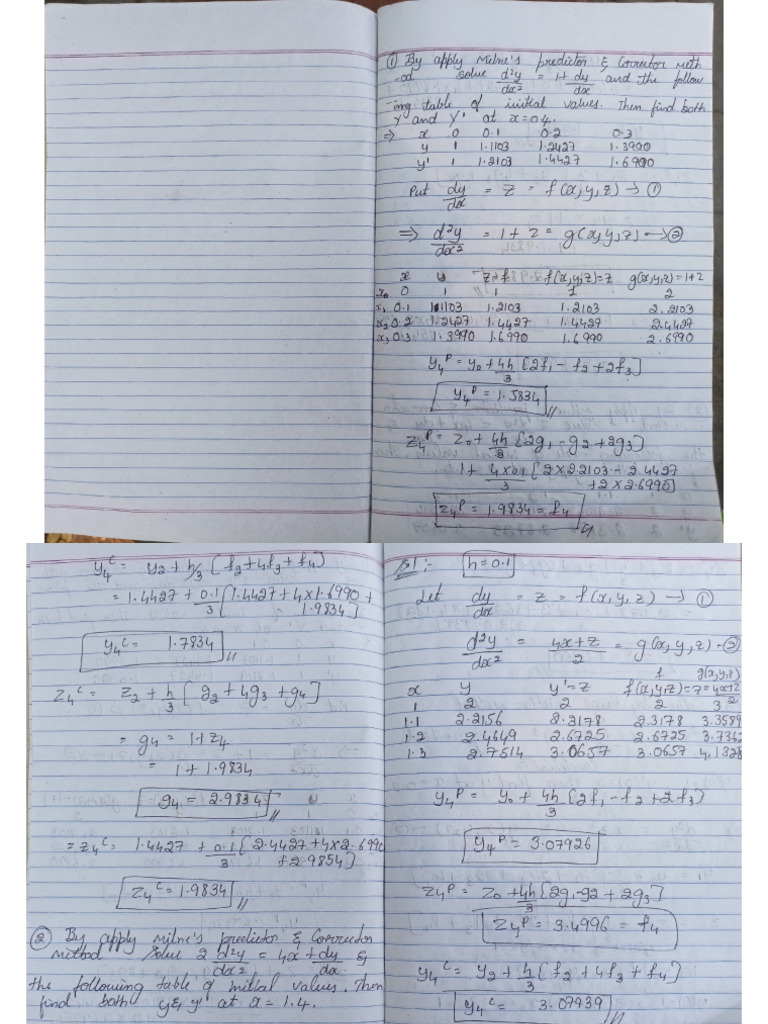 ① By apply Milne's predictor & Corrector meth
-od solve d²y/dx² = 1+ dy/dx and the follow
-ing table of initial values. Then find both
Y and Y' at x=0.4.
⇒ x 0 0.1 0.2 0.3
y 1 1.1103 1.2427 1.3990
y' 1 1.2103 1.4427 1.6990
Put dy/dx = z = f(x,y,z) → ①
⇒ d²y/dx² = 1+z = g(x,y,z) → ②
x y f(x,y,z)=z g(x,y,z)=1+z
x₀ 0 1 1 1 2
x₁ 0.1 1.1103 1.2103 1.2103 2.2103
x₂ 0.2 1.2427 1.4427 1.4427 2.4427
x₃ 0.3 1.3990 1.6990 1.6990 2.6990
y₄ᴾ = y₀ + 4h/3 [2f₁ - f₂ + 2f₃]
y₄ᴾ = 1.5834
z₄ᴾ = z₀ + 4h/3 [2g₁ - g₂ + 2g₃]
1 + 4×0.1/3 [2×2.2103 - 2.4427
+ 2×2.6990]
z₄ᴾ = 1.9834 = f₄
y₄ᶜ = y₂ + h/3 [f₂ + 4f₃ + f₄]
= 1.4427 + 0.1/3 [1.4427 + 4×1.6990 +
1.9834]
y₄ᶜ = 1.7834
z₄ᶜ = z₂ + h/3 [g₂ + 4g₃ + g₄]
= g₄ = 1+z₄
= 1+1.9834
g₄ = 2.9834
= z₄ᶜ = 1.4427 + 0.1/3 [2.4427 + 4×2.6990
+ 2.9854]
z₄ᶜ = 1.9834
② By apply Milne's predictor & Corrector
method solve 2 d²y/dx² = 4x + dy/dx &
the following table of initial values. Then
find both y & y' at x = 1.4.
h = 0.1
Let dy/dx = z = f(x,y,z) → ①
d²y/dx² = 4x+z/2 = g(x,y,z) - ②
f g(x,y,z)
x y y'=z f(x,y,z)=z =4x+z/2
1 2 2 2 3
1.1 2.2156 2.3178 2.3178 3.3589
1.2 2.4649 2.6725 2.6725 3.7362
1.3 2.7514 3.0657 3.0657 4.1328
y₄ᴾ = y₀ + 4h/3 [2f₁ - f₂ + 2f₃]
y₄ᴾ = 3.07926
z₄ᴾ = z₀ + 4h/3 [2g₁ - g₂ + 2g₃]
z₄ᴾ = 3.4996 = f₄
y₄ᶜ = y₂ + h/3 [f₂ + 4f₃ + f₄]
y₄ᶜ = 3.07939